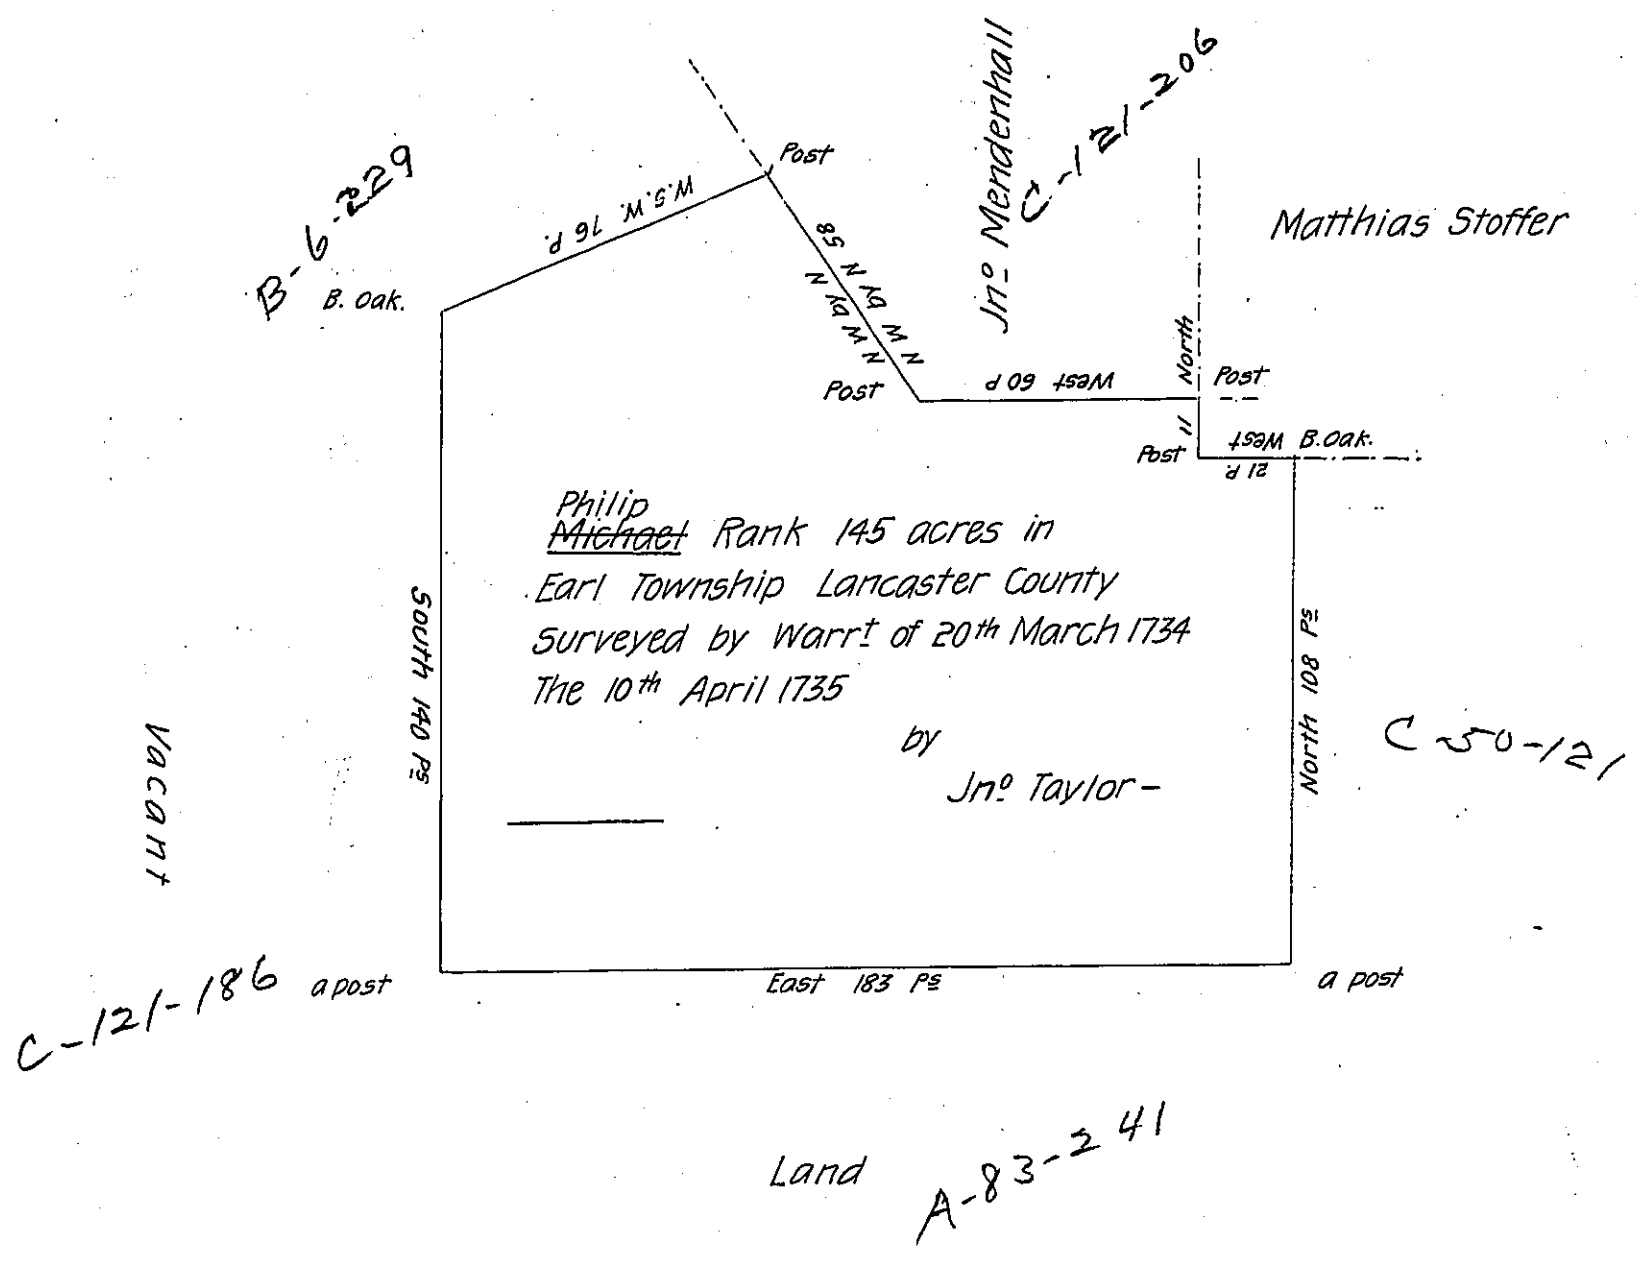 Jnº Mendenhall
C-121-206
Post
B-6-229
W.S.W. 76 P.
Matthias Stoffer
B. Oak.
N W by N 58
N W by N
North
Post
West 60 P
Post
11
West B. Oak.
Post
21 P.
Philip
Michael Rank 145 acres in
Earl Township Lancaster County
Surveyed by Warrt of 20th March 1734
The 10th April 1735
by
Jnº Taylor –
South 140 Ps
North 108 Ps
Vacant
C-50-121
C-121-186
a post
East 183 Ps
a post
Land
A-83-241